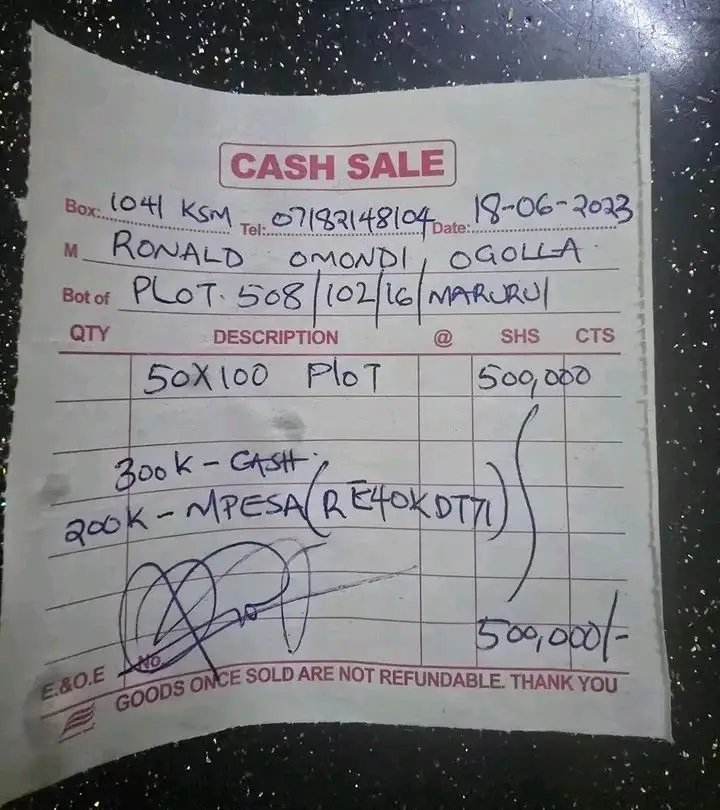 CASH SALE
Box: 1041 KSM Tel: 07182148104 Date: 18-06-2023
M RONALD OMONDI, OGOLLA
Bot of PLOT. 508/102/16/MARURUI
QTY DESCRIPTION @ SHS CTS
50X100 PLOT 500,000
300K - CASH.
200K - MPESA (RE40KDT71)
500,000/-
E.&O.E No.
GOODS ONCE SOLD ARE NOT REFUNDABLE. THANK YOU